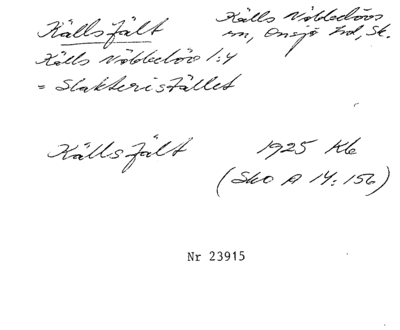 Källs fält
Källs Nöbbelövs
sn, Onsjö hd, Sk.
Källs Nöbbelöv 1:4
= Slakterifället
Källs fält 1925 Kb
(Sko A 14:156)
Nr 23915